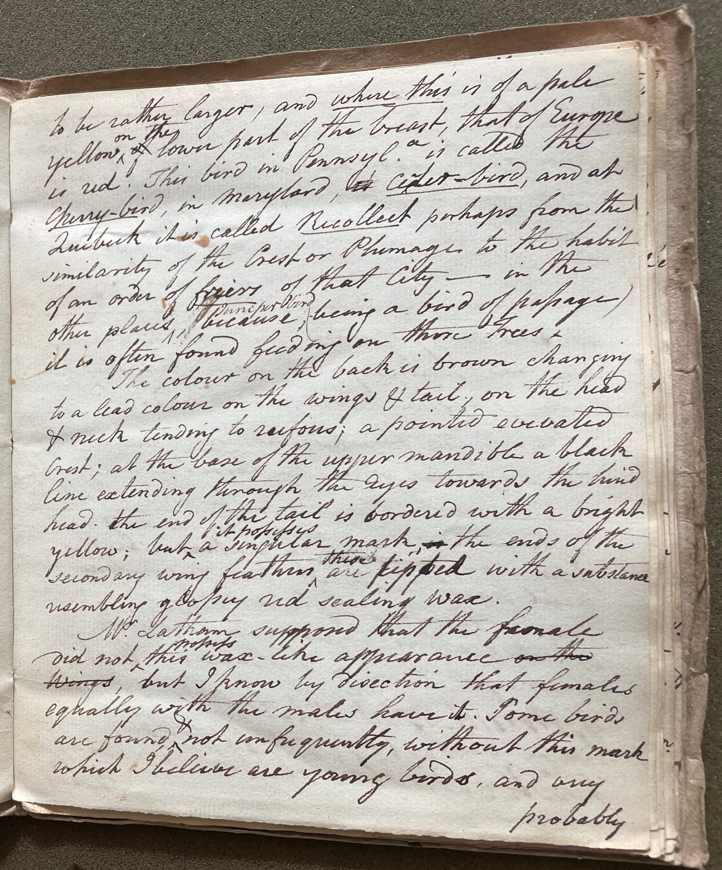 to be rather larger, and where this is of a pale
yellow, on the of lower part of the breast, that of Europe
is red. This bird in Pennsyl.a is called the
Cherry-bird, in maryland, is ceder-bird, and at
Quibeck it is called Recollect perhaps from the
similarity of the Crest or Plumage to the habit
of an order of friers of that City — in the
other places, Juniper Bird because, (being a bird of passage)
it is often found feeding on those Trees.
The colour on the back is brown changing
to a lead colour on the wings & tail, on the head
& neck tending to rufous; a pointed elevated
Crest; at the base of the upper mandible a black
line extending through the Eyes towards the hind
head. the end of the tail is bordered with a bright
yellow; but it possesses a singular mark, the ends of the
secondary wing feathers these are tipped with a substance
resembling glossy red sealing wax.
Mr. Latham supposed that the female
did not possess this wax-like appearance on the
Wings, but I know by disection that females
equally with the males have it. Some birds
are found, & not unfrequently, without this mark
which I believe are young birds, and very
probably